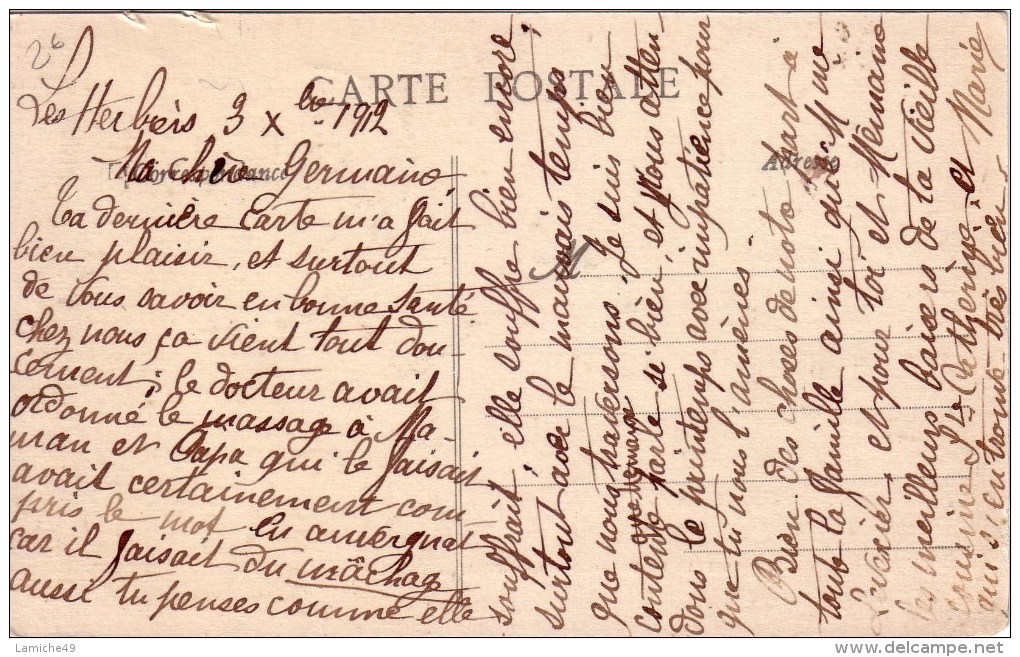 26
CARTE POSTALE
Correspondance
Adresse
M
Les Herbiers 3 Xbre 1912
Ma chère Germaine,
Ta dernière carte m'a fait
bien plaisir, et surtout
de vous savoir en bonne santé
chez nous ça vient tout dou-
cement ; le docteur avait
ordonné le massage à Ma-
man et Papa qui le faisait
avait certainement com-
pris le mot en auvergnat
car il faisait du mâchage
aussi tu penses comme elle
souffrait ; elle souffre bien encore,
surtout avec le mauvais temps
que nous traversons. Je suis bien
contente que le mari parle si bien, et nous atten-
dons le printemps avec impatience pour
que tu nous l'amènes
Bien des choses de notre part à
toute la famille ainsi qu'à Mme
et pour toi et Mémaine
les meilleurs baisers de ta vieille
cousine Catherine et Marie
qui s'en trouve très bien
Lamiche49
www.delcampe.net